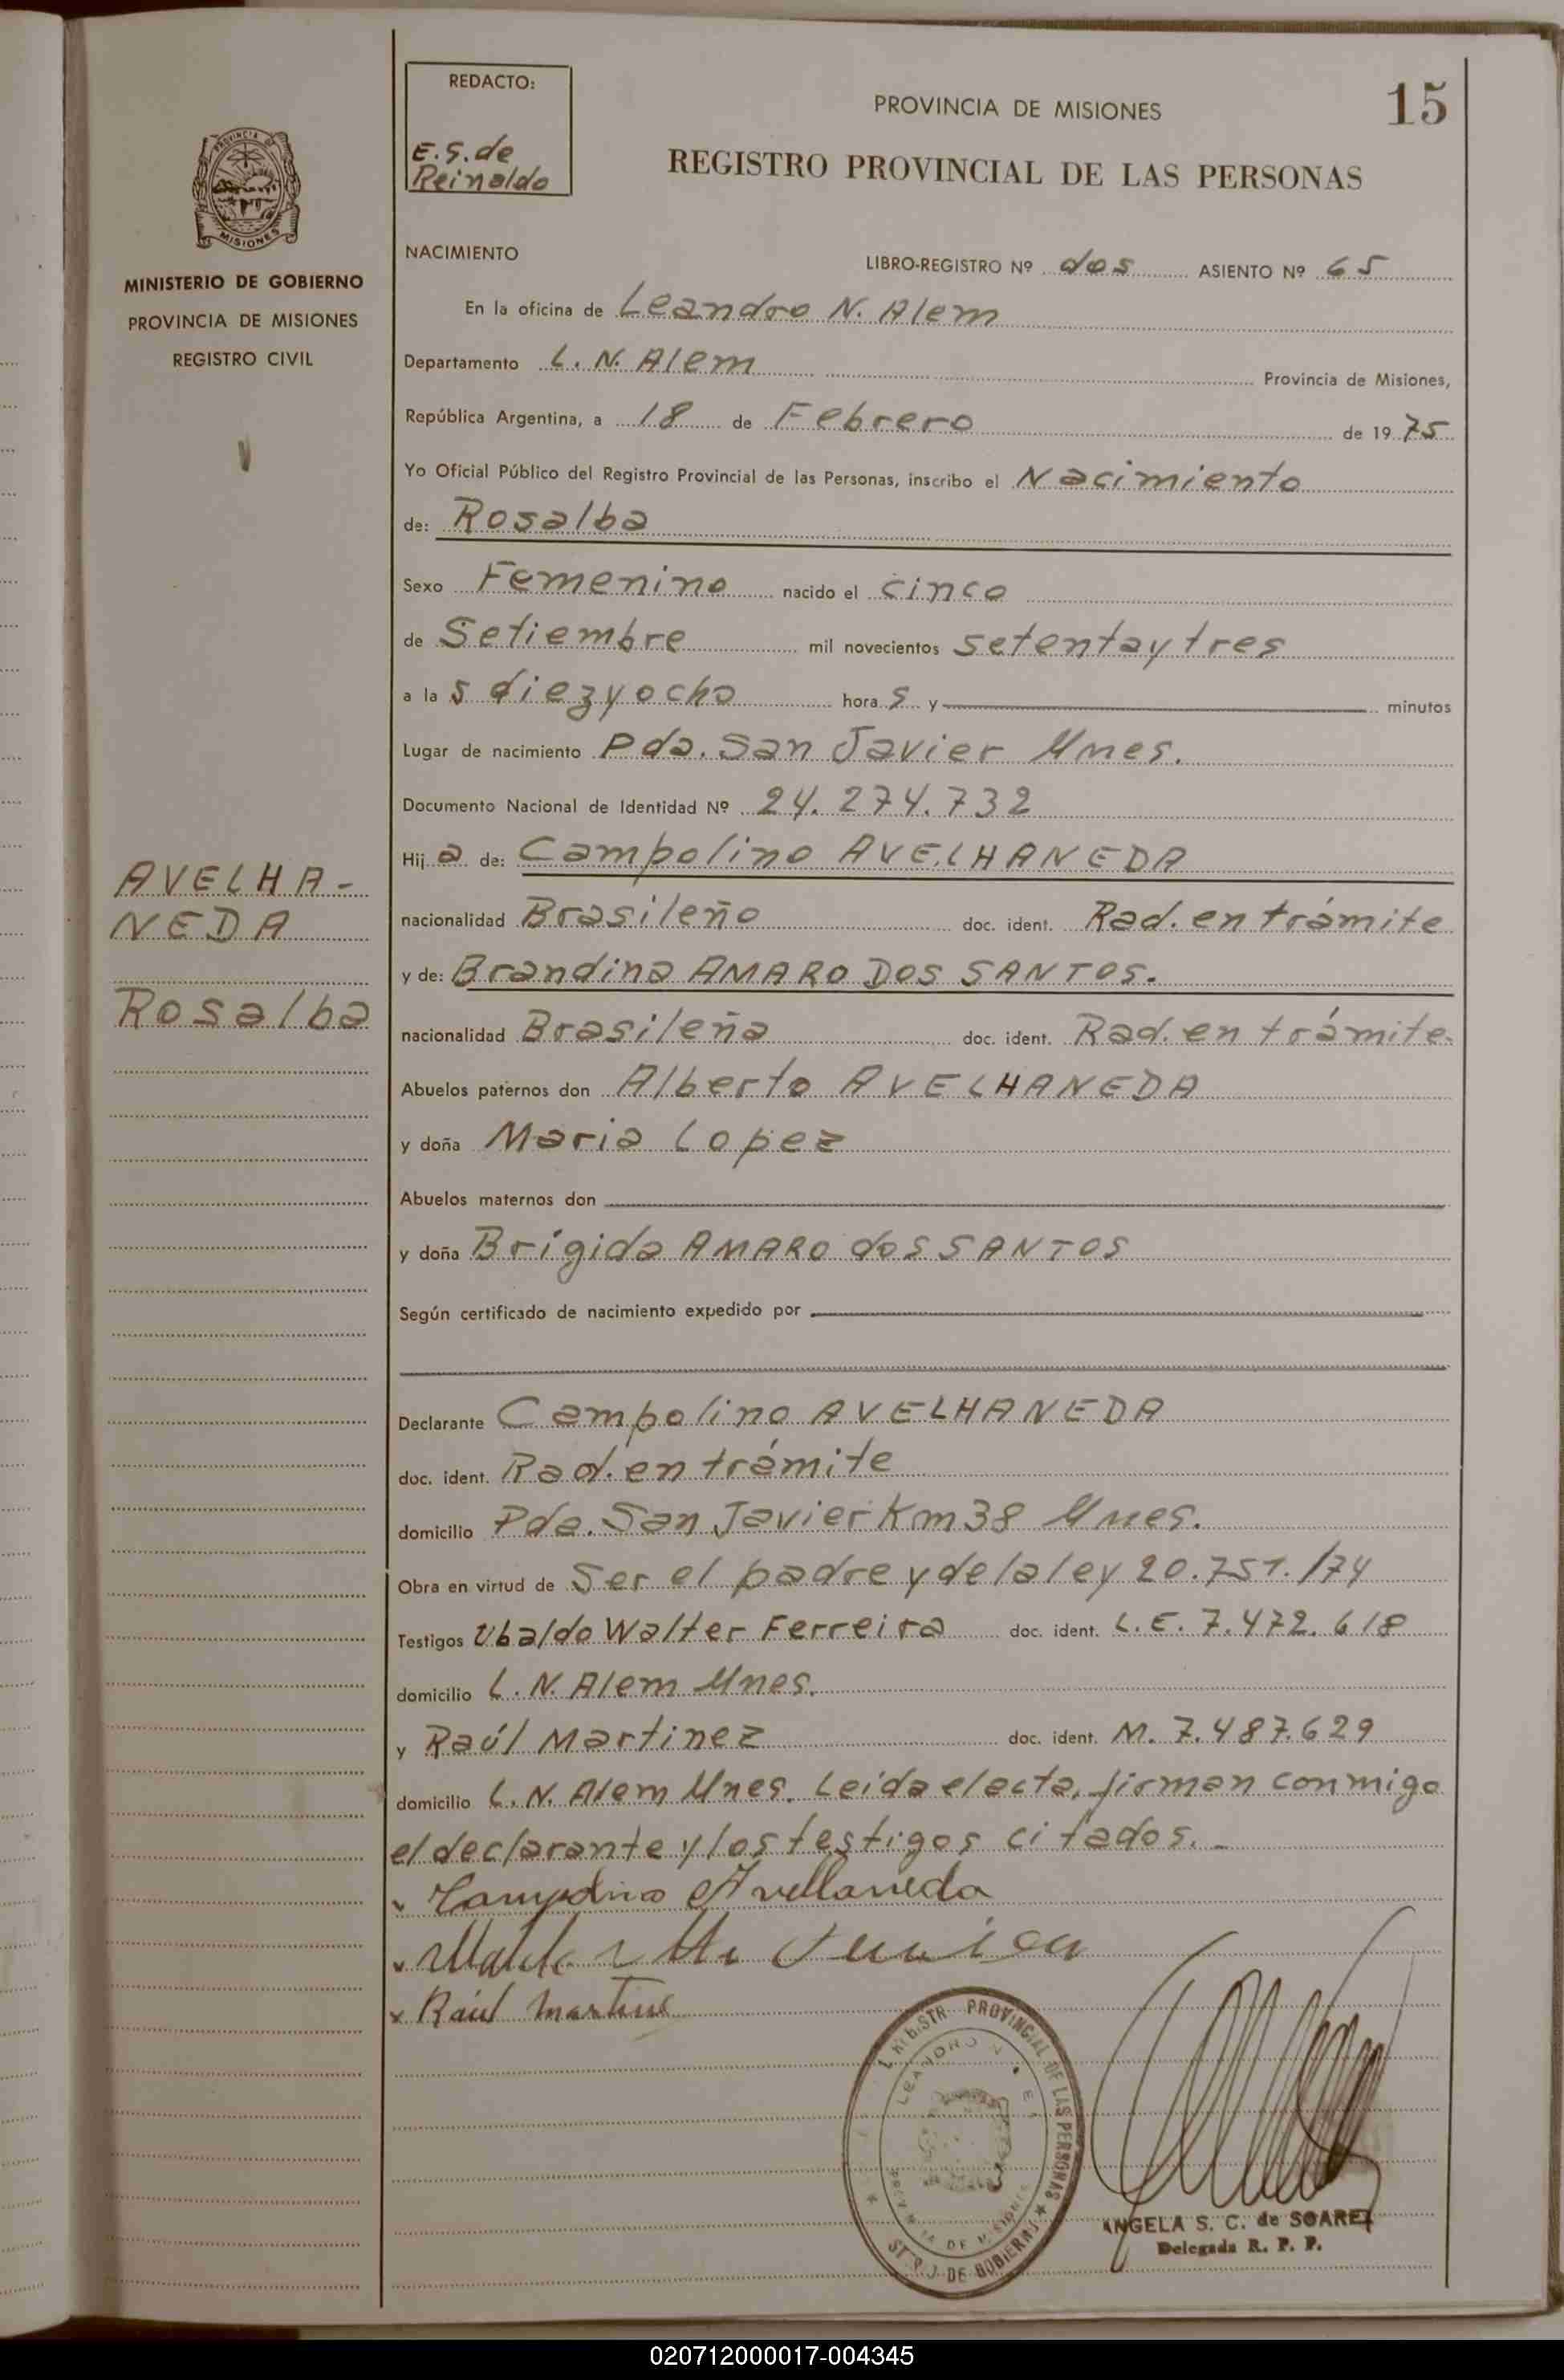 REDACTO:
E.S. de
Reinaldo
PROVINCIA DE MISIONES
15
REGISTRO PROVINCIAL DE LAS PERSONAS
PROVINCIA DE
MISIONES
MINISTERIO DE GOBIERNO
PROVINCIA DE MISIONES
REGISTRO CIVIL
AVELHA-
NEDA
Rosalba
NACIMIENTO
LIBRO-REGISTRO Nº dos ASIENTO Nº 65
En la oficina de Leandro N. Alem
Departamento L. N. Alem Provincia de Misiones,
República Argentina, a 18 de Febrero de 1975
Yo Oficial Público del Registro Provincial de las Personas, inscribo el Nacimiento
de: Rosalba
Sexo Femenino nacido el cinco
de Setiembre mil novecientos setentaytres
a las diezyocho horas y minutos
Lugar de nacimiento Pda. San Javier Mnes.
Documento Nacional de Identidad Nº 24.274.732
Hija de: Campolino AVELHANEDA
nacionalidad Brasileño doc. ident. Rad. en trámite
y de: Brandina AMARO DOS SANTOS.
nacionalidad Brasileña doc. ident. Rad. en trámite.
Abuelos paternos don Alberto AVELHANEDA
y doña Maria Lopez
Abuelos maternos don
y doña Brígida AMARO dos SANTOS
Según certificado de nacimiento expedido por
Declarante Campolino AVELHANEDA
doc. ident. Rad. en trámite
domicilio Pda. San Javier Km 38 Mnes.
Obra en virtud de Ser el padre y de la ley 20.751./74
Testigos Ubaldo Walter Ferreira doc. ident. L.E. 7.472.618
domicilio L. N. Alem Mnes.
y Raúl Martinez doc. ident. M. 7.487.629
domicilio L. N. Alem Mnes. Leida el acta, firman conmigo
el declarante y los testigos citados. -
Avellaneda
Raúl Martinez
PROVINCIAL DE LAS PERSONAS
LEANDRO N.
DE MISIONES
DE GOBIERNO
ANGELA S. C. de SOAREZ
Delegada R. P. P.
020712000017-004345